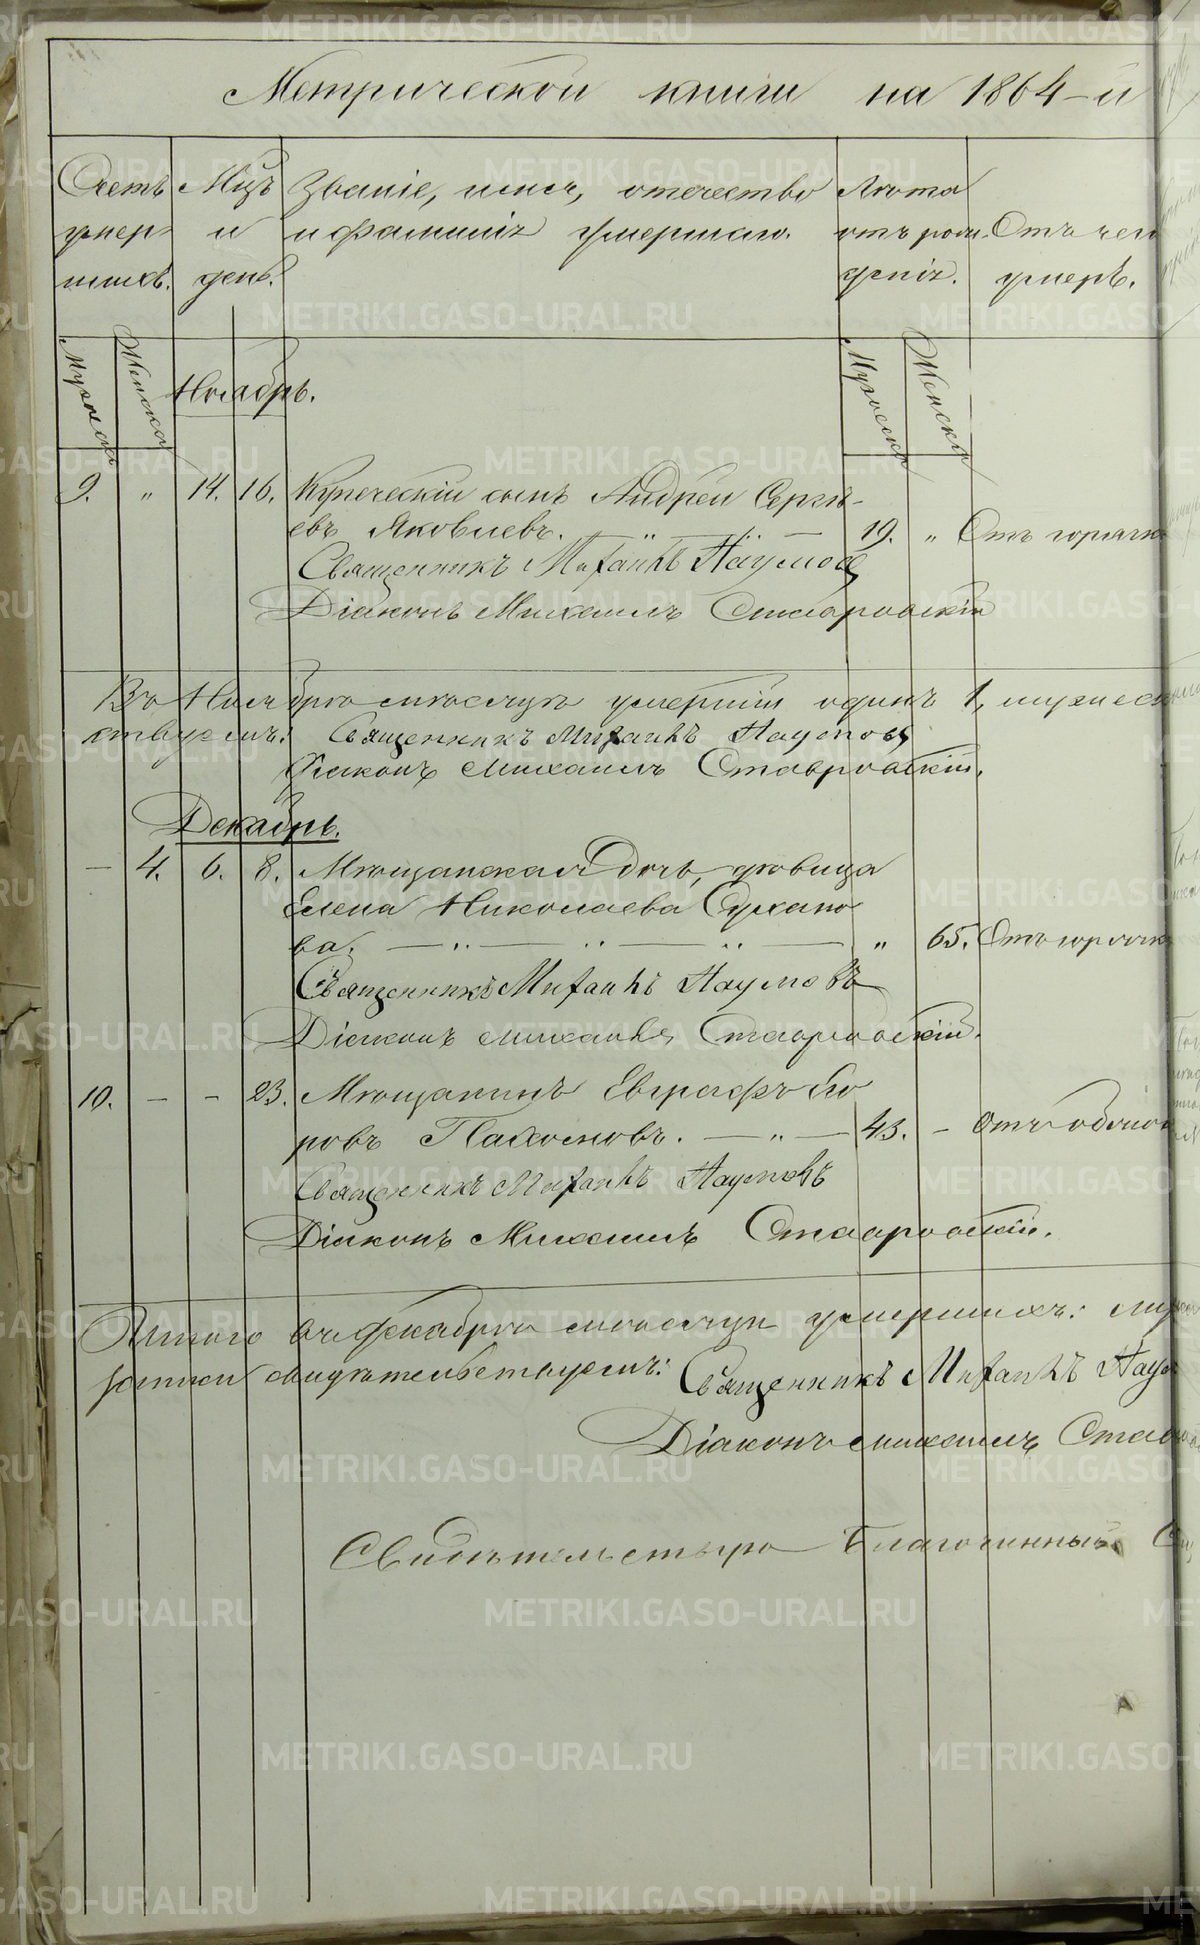 Метрической книги на 1864-й
Счетъ умер- шихъ.
Мцъ и день.
Званіе, имя, отчество и фамилія умершаго.
Лѣта отъ рож- денія.
Отъ чего умеръ.
Мужеска Женска
Мужеска Женска
Ноябрь.
9. „ 14. 16. Купеческій сынъ Андрей Сергѣ-
евъ Яковлевъ. 19. „ Отъ горячк
Священникъ Мифаилъ Наумовъ
Діаконъ Михаилъ Ставровскій
Въ Ноябрѣ мѣсяцѣ умершій одинъ 1, мужеск
Священникъ Мифаилъ Наумовъ
Діаконъ Михаилъ Ставровскій.
Декабрь.
— 4. 6. 8. Мѣщанская дочь, дѣвица
Елена Николаева Сухано
ва. „ 65. Отъ горячк
Священникъ Мифаилъ Наумовъ
Діаконъ Михаилъ Ставровскій.
10. — - 23. Мѣщанинъ Евграфъ Его
ровъ Пахомовъ. 43. - Отъ
Священникъ Мифаилъ Наумовъ
Діаконъ Михаилъ Ставровскій.
Итого въ декабрѣ мѣсяцѣ умершихъ:
свидѣтельствуемъ: Священникъ Мифаилъ Наум
Діаконъ Михаилъ Став
Свидѣтельствую Благочинный
METRIKI.GASO-URAL.RU